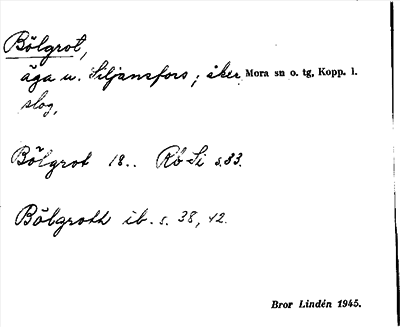 Bölgrot,
äga u. Siljansfors; åker, Mora sn o. tg, Kopp. l.
slog,
Bölgrot 18.. Rö-Si s. 83.
Bölgroth ib. s. 38, 42.
Bror Lindén 1945.